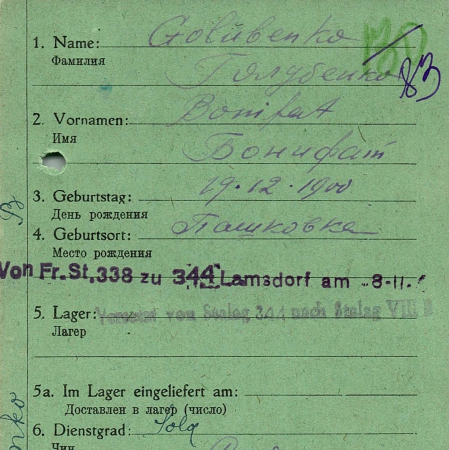 1. Name: Golubenko
Фамилия Голубенко
83
2. Vornamen: Bonifat
Имя Бонифат
3. Geburtstag: 19.12.1900
День рождения
4. Geburtsort: Пашковка
Место рождения
Von Fr. St. 338 zu 344 Lamsdorf am -8-11.
5. Lager: Versetzt von Stalag 344 nach Stalag VIII B
Лагер
5a. Im Lager eingeliefert am:
Доставлен в лагер (число)
6. Dienstgrad: Sold
Чин